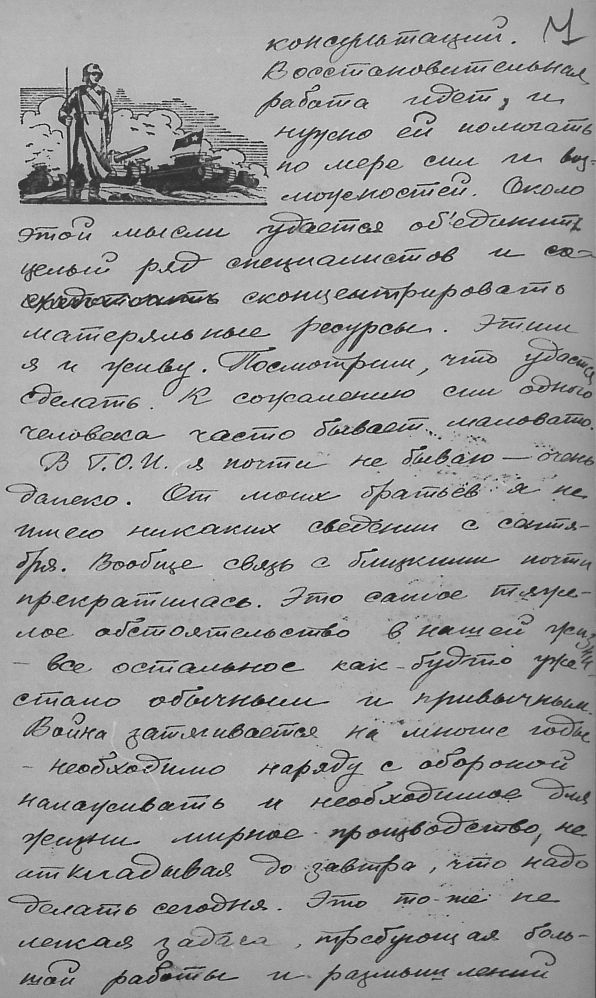 консультаций. М
Восстановительная
работа идет, и
нужно ей помогать
по мере сил и воз-
можностей. Около
этой мысли удается об'единить
целый ряд специалистов и со-
сконцентрировать
матеряльные ресурсы. Этим
я и живу. Посмотрим, что удастся
сделать. К сожалению сил одного
человека часто бывает маловато.
В Г.О.И. я почти не бываю — очень
далеко. От моих братьев я не
имею никаких сведений с сентя-
бря. Вообще связь с близкими почти
прекратилась. Это самое тяже-
лое обстоятельство в нашей жизни
— все остальное как-будто уже
стало обычным и привычным.
Война затягивается на многие годы
— необходимо наряду с обороной
налаживать и необходимое для
жизни мирное производство, не
откладывая до завтра, что надо
делать сегодня. Это то-же не
легкая задача, требующая боль-
шой работы и размышлений